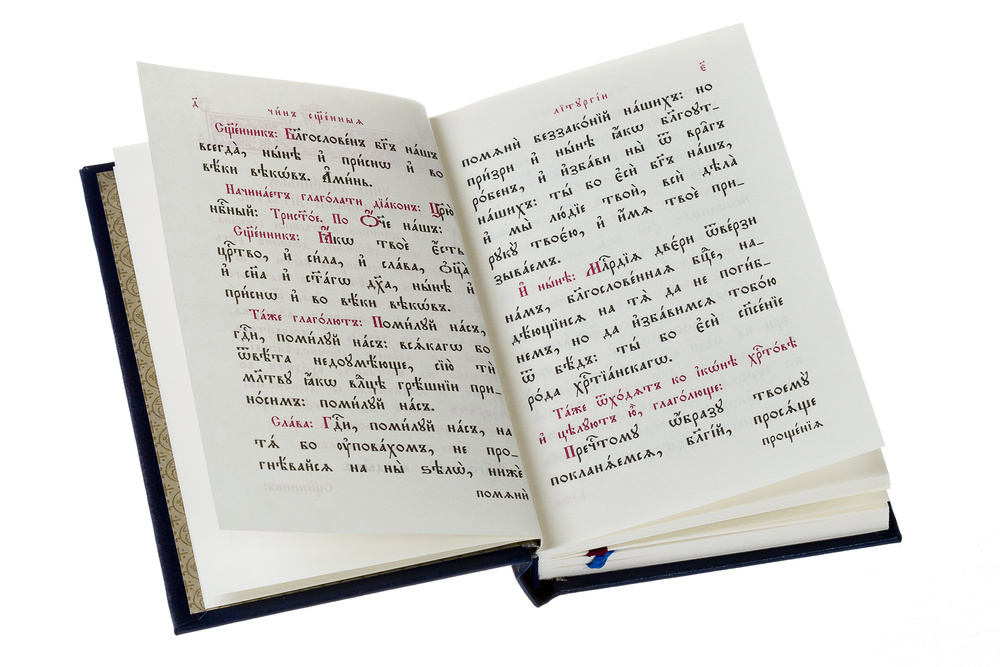 д҃
чи́нъ сщ҃е́нныѧ
Сщ҃е́нникъ: Бл҃гослове́нъ бг҃ъ на́шъ
всегда̀, ны́нѣ и҆ при́снѡ и҆ во
вѣ́ки вѣкѡ́въ. А҆ми́нь.
Начина́етъ глаго́лати дїа́конъ: Цр҃ю̀
нбⷭ҇ный: Трист҃о́е. По Ѻ҆́ч҃е на́шъ:
Сщ҃е́нникъ: Ꙗ҆́кѡ твоѐ є҆́сть
црⷭ҇тво, и҆ си́ла, и҆ сла́ва, ѻ҆ц҃а̀
и҆ сн҃а и҆ ст҃а́гѡ дх҃а, ны́нѣ и҆
при́снѡ и҆ во вѣ́ки вѣкѡ́въ.
Та́же глаго́лютъ: Поми́лꙋй на́съ,
гдⷭ҇и, поми́лꙋй на́съ: всѧ́кагѡ бо
ѿвѣ́та недоꙋмѣ́юще, сїю̀ тѝ
мл҃твꙋ ꙗ҆́кѡ влⷣцѣ грѣ́шнїи при-
но́симъ: поми́лꙋй на́съ.
Сла́ва: Гдⷭ҇и, поми́лꙋй на́съ, на
тѧ́ бо ᲂу҆пова́хомъ, не про-
гнѣ́вайсѧ на ны̀ ѕѣлѡ̀, нижѐ
помѧнѝ
літꙋргі́и
є҃
помѧнѝ беззако́нїй на́шихъ: но
при́зри и҆ ны́нѣ ꙗ҆́кѡ бл҃гоꙋт-
ро́бенъ, и҆ и҆зба́ви ны̀ ѿ вра̑гъ
на́шихъ: ты́ бо є҆сѝ бг҃ъ на́шъ,
и҆ мы̀ лю́дїе твоѝ, всѝ дѣла̀
рꙋкꙋ̀ твоє́ю, и҆ и҆́мѧ твоѐ при-
зыва́емъ.
И҆ ны́нѣ: Млⷭ҇рдїѧ две́ри ѿве́рзи
на́мъ, бл҃гослове́ннаѧ бц҃е, на-
дѣ́ющїисѧ на тѧ̀ да не поги́б-
немъ, но да и҆зба́вимсѧ тобо́ю
ѿ бѣ́дъ: ты́ бо є҆сѝ сп҃се́нїе
ро́да хрⷭ҇тїа́нскагѡ.
Та́же ѿхо́дѧтъ ко і҆кѡ́нѣ хрⷭ҇то́вѣ
и҆ цѣлꙋ́ютъ ю҆̀, глаго́люще:
Пречⷭ҇томꙋ ѻ҆́бразꙋ твоемꙋ̀
покланѧ́емсѧ, бл҃гі́й, просѧ́ще
проще́нїѧ